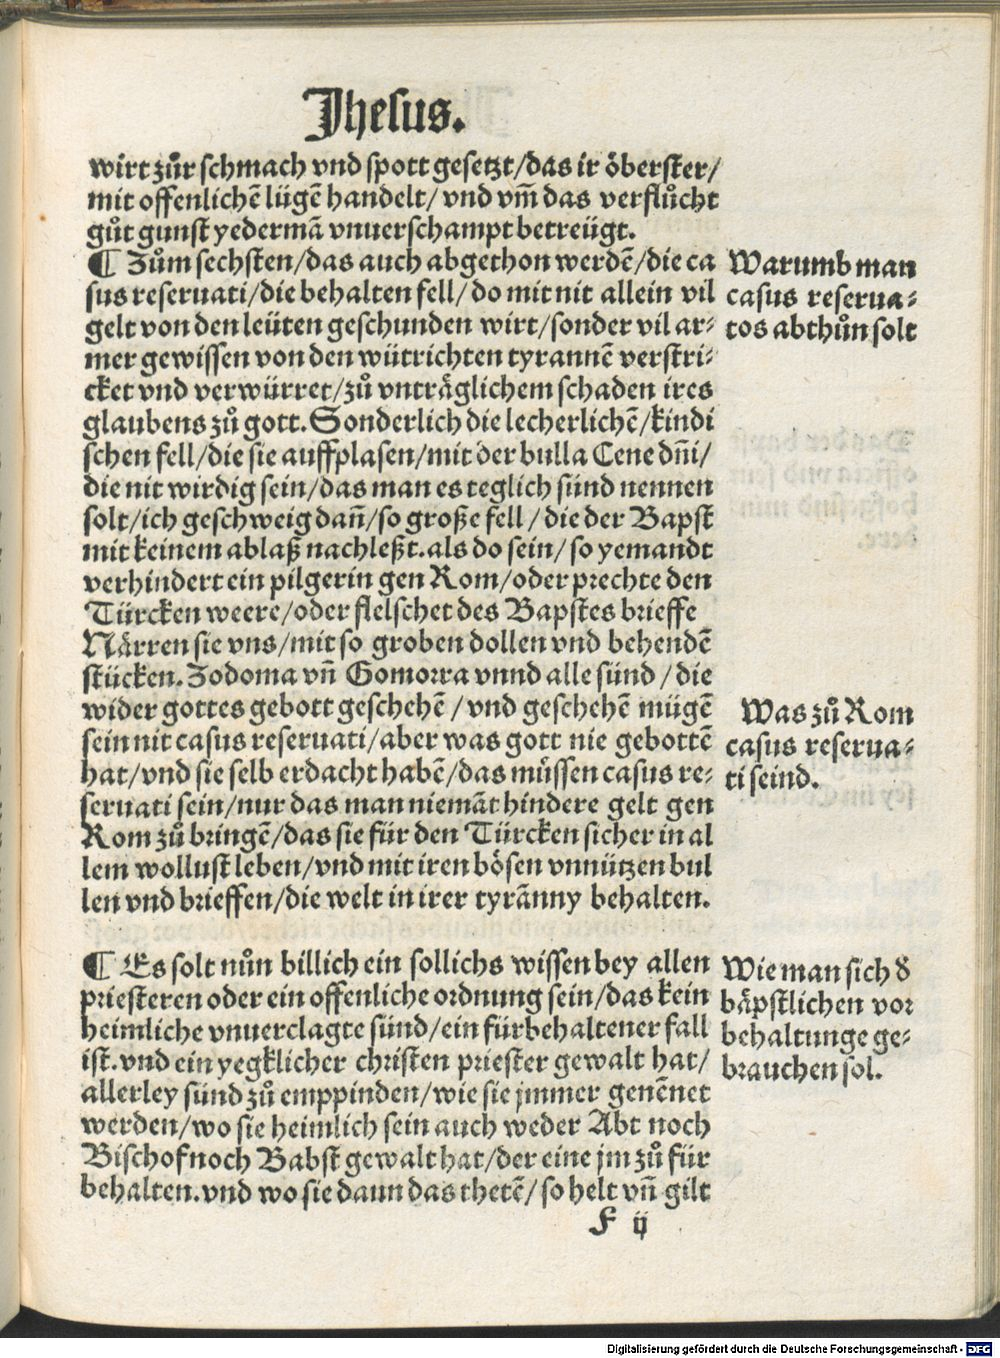 Jhesus.
wirt zůr schmach vnd spott gesetzt/das ir öberster/
mit offenlichē lügē handelt/ vnd vm̄ das verflůcht
gůt gunst yedermā vnuerschampt betreügt.
¶ Zům sechsten/das auch abgethon werdē/die ca
sus reseruati/die behalten fell/do mit nit allein vil
gelt von den leüten geschunden wirt/sonder vil ar⸗
mer gewissen von den wütrichten tyrannē verstri⸗
cket vnd verwürret/zů vnträglichem schaden ires
glaubens zů gott. Sonderlich die lecherlichē/kindi
schen fell/die sie auffplasen/mit der bulla Cene dn̄i/
die nit wirdig sein/das man es teglich sünd nennen
solt/ich geschweig dan̄/so große fell/ die der Bapst
mit keinem ablaß nachleßt. als do sein/ so yemandt
verhindert ein pilgerin gen Rom/oder prechte den
Türcken weere/oder flelschet des Bapstes brieffe
Närren sie vns/mit so groben dollen vnd behendē
stücken. Zodoma vn̄ Gomorra vnnd alle sünd / die
wider gottes gebott geschehē /vnd geschehē mügē
sein nit casus reseruati/aber was gott nie gebottē
hat/vnd sie selb erdacht habē/das můssen casus re⸗
seruati sein/nur das man niemāt hindere gelt gen
Rom zů bringē/das sie für den Türcken sicher in al
lem wollust leben/vnd mit iren bösen vnnützen bul
len vnd brieffen/die welt in irer tyrānny behalten.
¶ Es solt nůn billich ein sollichs wissen bey allen
priesteren oder ein offenliche ordnung sein/das kein
heimliche vnuerclagte sünd/ein fürbehaltener fall
ist. vnd ein yegklicher christen priester gewalt hat/
allerley sünd zů emppinden/wie sie jmmer genēnet
werden/wo sie heimlich sein auch weder Abt noch
Bischof noch Babst gewalt hat/der eine jm zů für
behalten. vnd wo sie dann das thetē/ so helt vn̄ gilt
F ij
Warumb man
casus reserua⸗
tos abthůn solt
Was zů Rom
casus reserua⸗
ti seind.
Wie man sich ď
bäpstlichen vor
behaltunge ge⸗
brauchen sol.
Digitalisierung gefördert durch die Deutsche Forschungsgemeinschaft - DFG